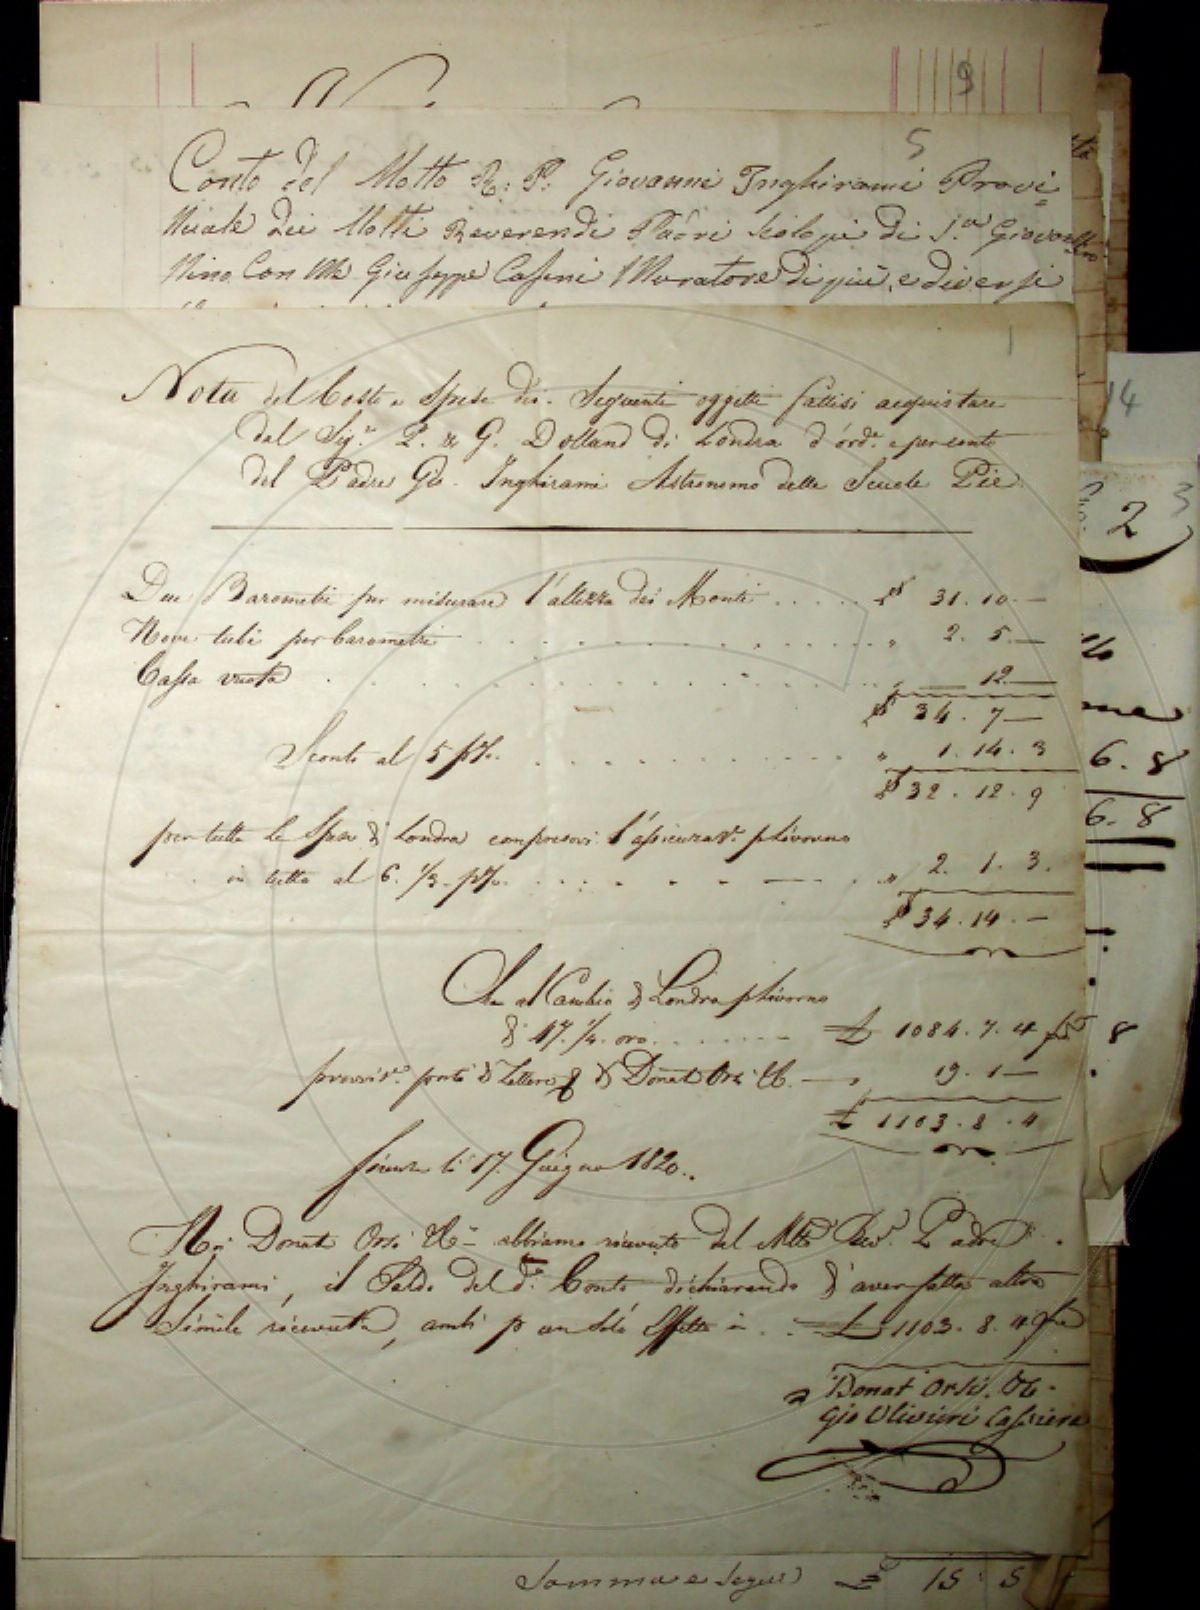 9
5
Conto del Molto R: P: Giovanni Inghirami Provi=
nciale dei Molti Reverendi Padri Scolopi di S.
Nino Con Me Giuseppe Casini Muratore di più, e diversi
1
Nota del Costo e Spese dei Seguenti oggetti fattisi acquistare
dal Sigr. P. & G. Dolland di Londra d'ord.e e per conto
del Padre Gio. Inghirami Astronomo delle Scuole Pie
Due Barometri per misurare l'altezza dei Monti . . . . . £ 31. 10. —
Nove tubi per barometri . . . . . . . . . . . . . " 2. 5. —
Cassa vuota . . . . . . . . . . . . . . " — 12. —
£ 34. 7 —
Sconto al 5 p%. . . . . . . . . . . . . " 1. 14. 3
£ 32. 12. 9
per tutte le Spese di Londra compresovi l'assicuraz.e p Livorno
in tutto al 6. 1/3. p%. . . . . . . — . . " 2. 1. 3.
£ 34. 14. —
Che al Cambio di Londra p Livorno
di 47. 1/4. oro . . . . . . . £ 1084. 7. 4
provvis.e porti di Lettere di Donat Orsi & C. — " 19. 1 —
£ 1103. 8. 4
Firenze li 17. Giugno 1820.
Noi Donat Orsi & C. abbiamo ricevuto dal Mto Rev. Padre
Inghirami, il Saldo del d.o Conto dichiarando d'aver fatta altra
Simile ricevuta, ambi p un Solo Effetto in . . £ 1103. 8. 4
Donat Orsi. & C.
Gio Ulivieri Cassiere
14
2
3
6. 8
6. 8
8
Somma e Segue £ 15 . 5